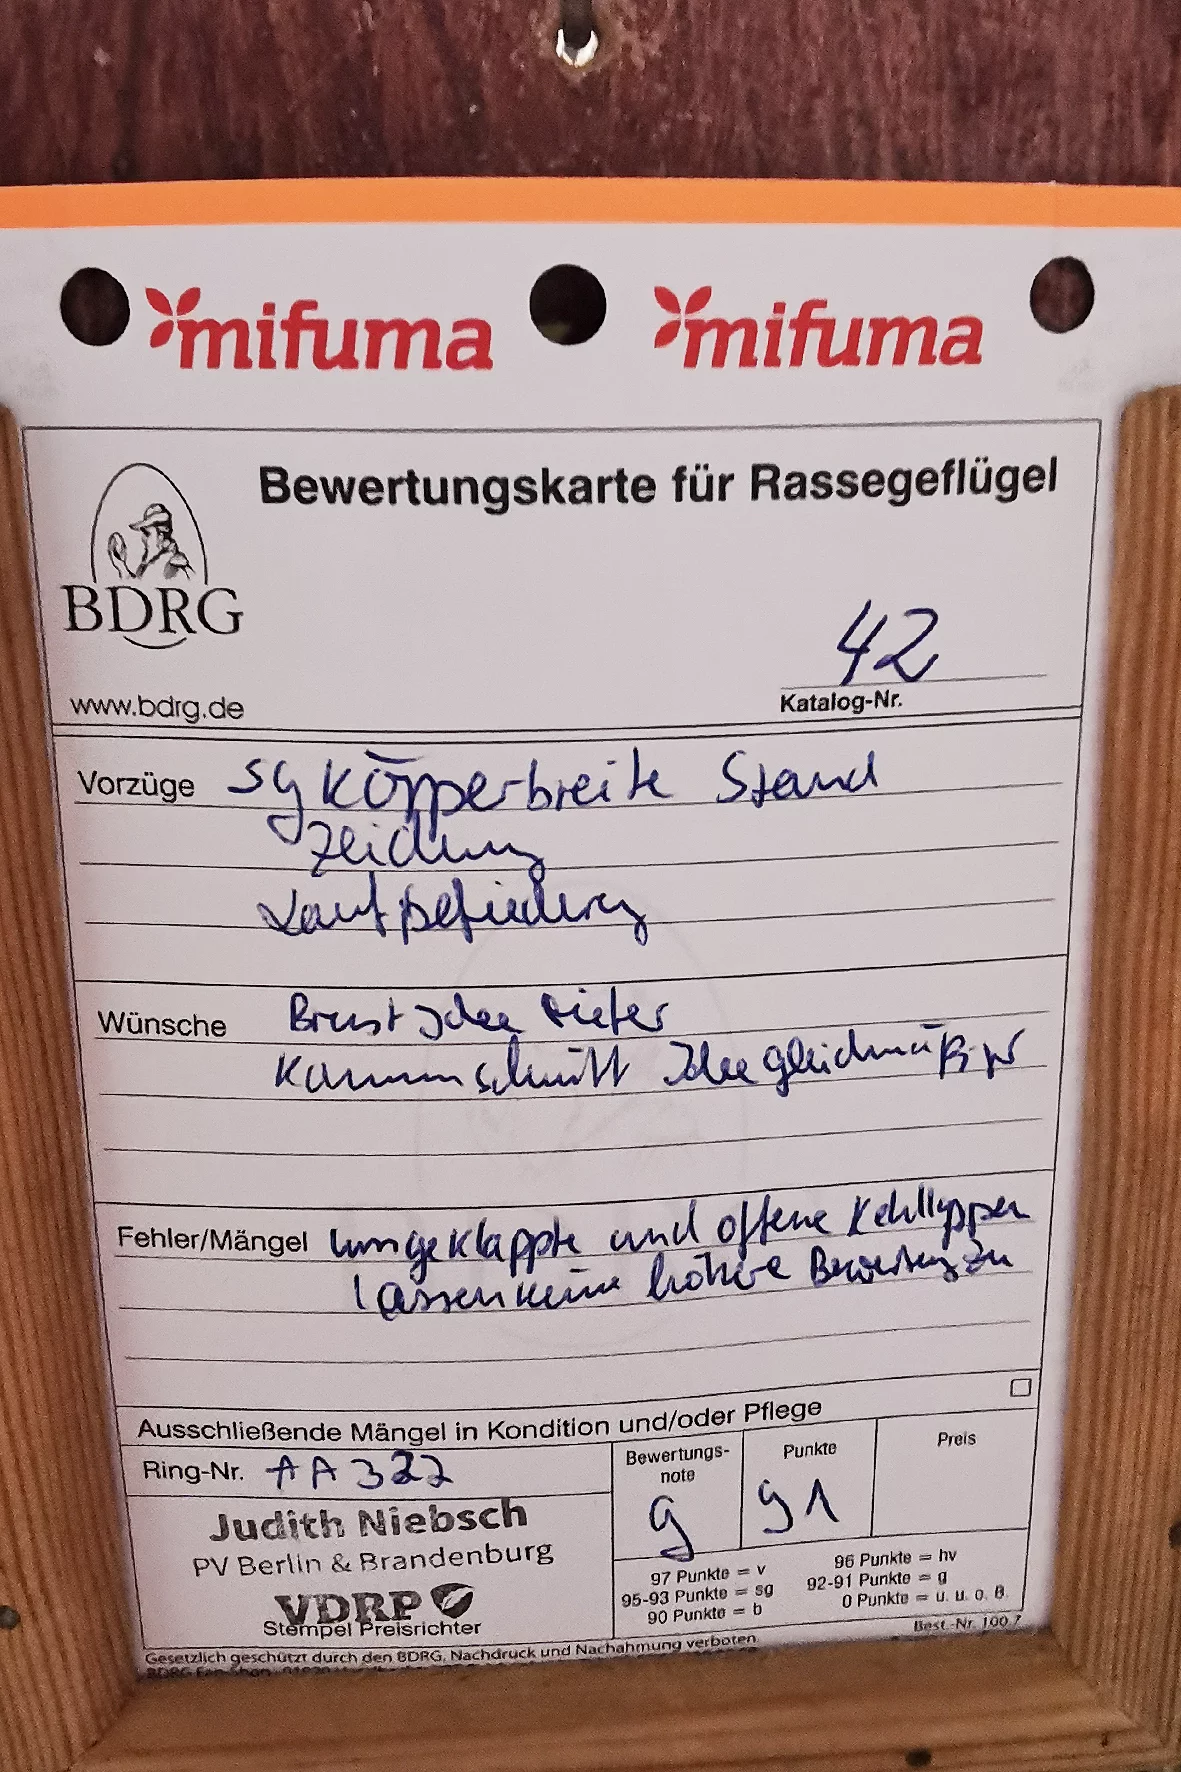 mifuma mifuma
Bewertungskarte für Rassegeflügel
BDRG
42
www.bdrg.de
Katalog-Nr.
Vorzüge sg Körperbreite Stand
Zeichnung
Laufbefiederung
Wünsche Brust tiefer
Kammschnitt gleichmäßiger
Fehler/Mängel umgeklappte und offene Kehllappen
lassen keine höhere Bewertung zu
Ausschließende Mängel in Kondition und/oder Pflege
Ring-Nr. AA 322
Bewertungs-
note
g
Punkte
91
Preis
Judith Niebsch
PV Berlin & Brandenburg
VDRP
Stempel Preisrichter
97 Punkte = v
95-93 Punkte = sg
90 Punkte = b
96 Punkte = hv
92-91 Punkte = g
0 Punkte = u. u. o. B.
Best.-Nr. 100.7
Gesetzlich geschützt durch den BDRG, Nachdruck und Nachahmung verboten